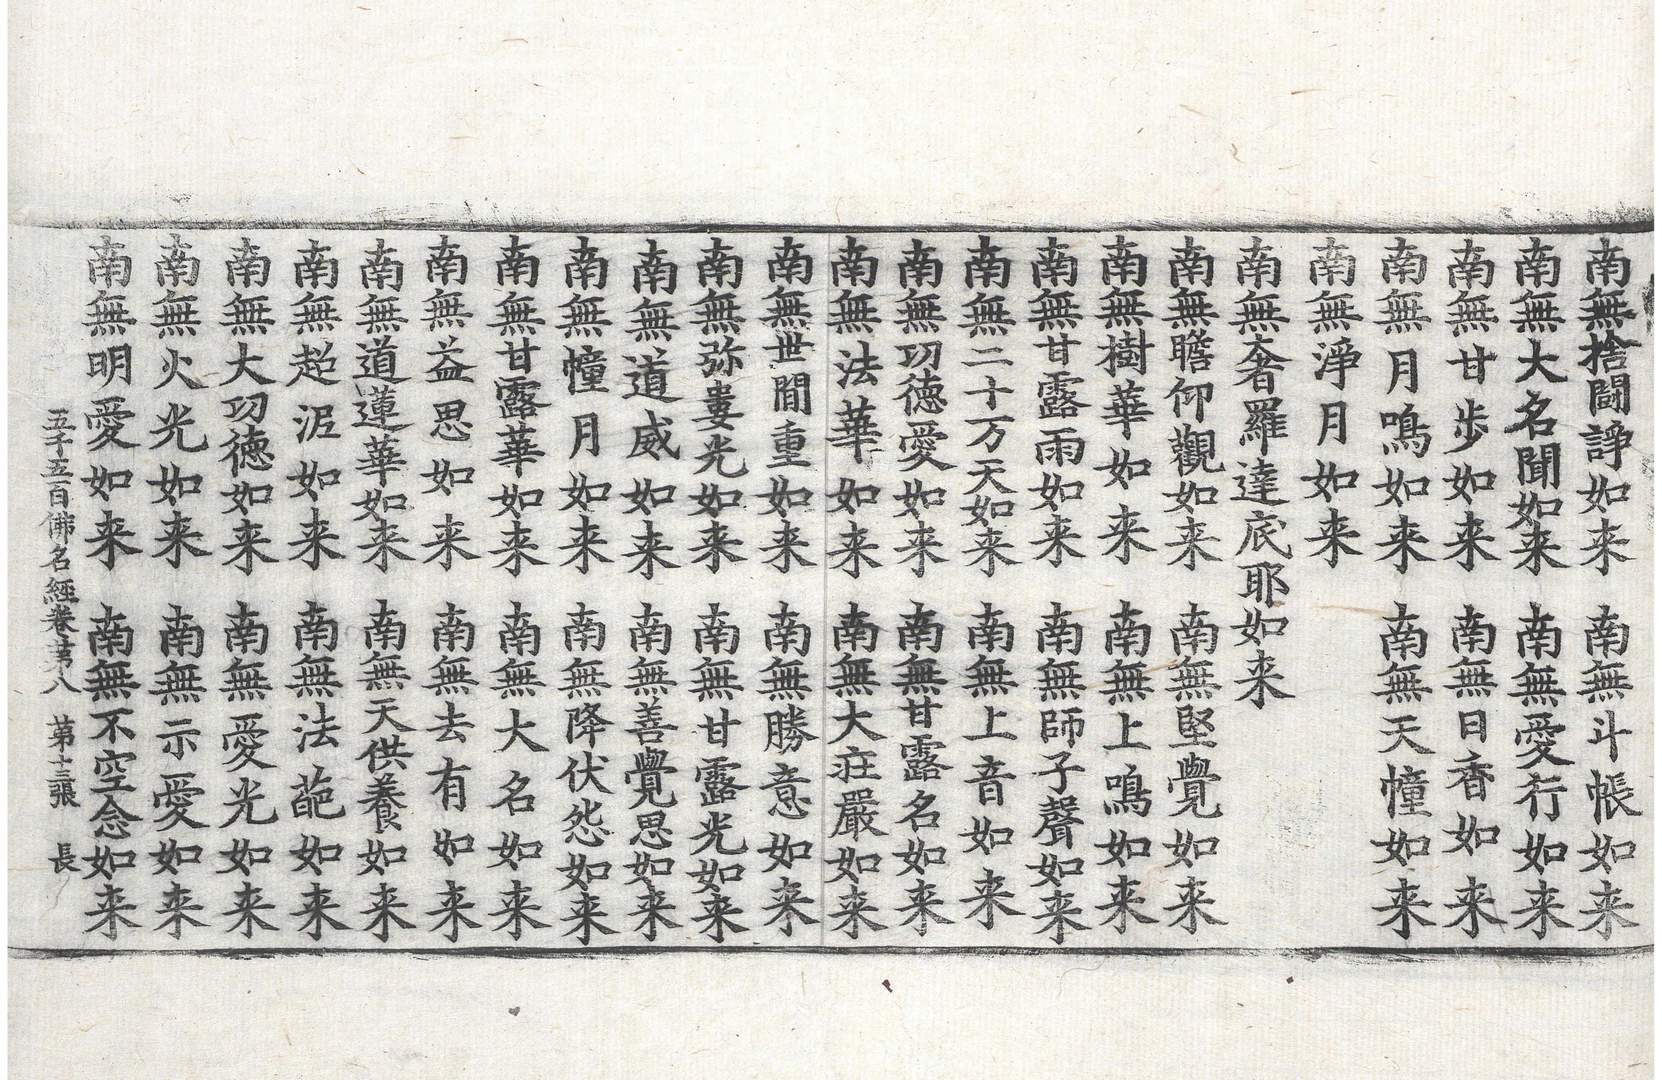 南無捨鬪諍如来 南無斗帳如来
南無大名聞如来 南無愛行如来
南無甘步如来 南無日香如来
南無月鳴如来 南無天幢如来
南無淨月如来
南無奢羅達底耶如来
南無瞻仰觀如来 南無堅覺如来
南無樹華如来 南無上鳴如来
南無甘露雨如来 南無師子聲如来
南無二十万天如来 南無上音如来
南無功德愛如来 南無甘露名如来
南無法華如来 南無大莊嚴如来
南無世間重如来 南無勝意如来
南無弥婁光如来 南無甘露光如来
南無道威如来 南無善覺思如来
南無幢月如来 南無降伏怨如来
南無甘露華如来 南無大名如来
南無益思如来 南無去有如来
南無道蓮華如来 南無天供養如来
南無超泥如来 南無法葩如来
南無大功德如来 南無愛光如来
南無火光如来 南無示愛如来
南無明愛如来 南無不空念如来
五千五百佛名經卷第八 第十三張 長